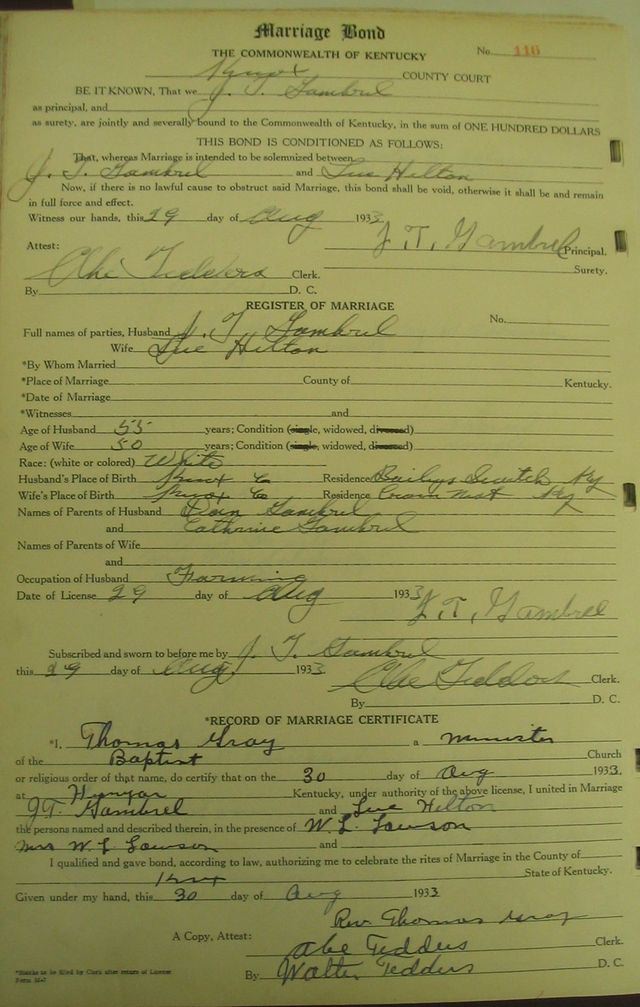 Marriage Bond
THE COMMONWEALTH OF KENTUCKY No. 116
Knox COUNTY COURT
BE IT KNOWN, That we J. T. Gambrel
as principal, and
as surety, are jointly and severally bound to the Commonwealth of Kentucky, in the sum of ONE HUNDRED DOLLARS
THIS BOND IS CONDITIONED AS FOLLOWS:
That, whereas Marriage is intended to be solemnized between
J. T. Gambrel and Sue Hilton
Now, if there is no lawful cause to obstruct said Marriage, this bond shall be void, otherwise it shall be and remain
in full force and effect.
Witness our hands, this 29 day of Aug 1933
J. T. Gambrel Principal.
Attest:
Surety.
Abe Tedders Clerk.
By D. C.
REGISTER OF MARRIAGE
No.
Full names of parties, Husband J. T. Gambrel
Wife Sue Hilton
*By Whom Married
*Place of Marriage County of Kentucky.
*Date of Marriage
*Witnesses and
Age of Husband 55 years; Condition (single, widowed, divorced)
Age of Wife 50 years; Condition (single, widowed, divorced)
Race: (white or colored) White
Husband's Place of Birth Knox Co Residence Baileys Switch Ky
Wife's Place of Birth Knox Co Residence Ky
Names of Parents of Husband Gambrel
and Catherine Gambrel
Names of Parents of Wife
and
Occupation of Husband Farming
Date of License 29 day of Aug 1933
J. T. Gambrel
Subscribed and sworn to before me by J. T. Gambrel
this 29 day of Aug 1933
Abe Tedders Clerk.
By D. C.
*RECORD OF MARRIAGE CERTIFICATE
*I, Thomas Gray a minister
of the Baptist Church
or religious order of that name, do certify that on the 30 day of Aug 1933.
at Kentucky, under authority of the above license, I united in Marriage
J. T. Gambrel and Sue Hilton
the persons named and described therein, in the presence of W. L. Lawson
Mrs W. L. Lawson and
I qualified and gave bond, according to law, authorizing me to celebrate the rites of Marriage in the County of
Knox State of Kentucky.
Given under my hand, this 30 day of Aug 1933
Rev. Thomas Gray
A Copy, Attest: Abe Tedders Clerk.
By Walter Tedders D. C.
*Blanks to be filled by Clerk after return of License